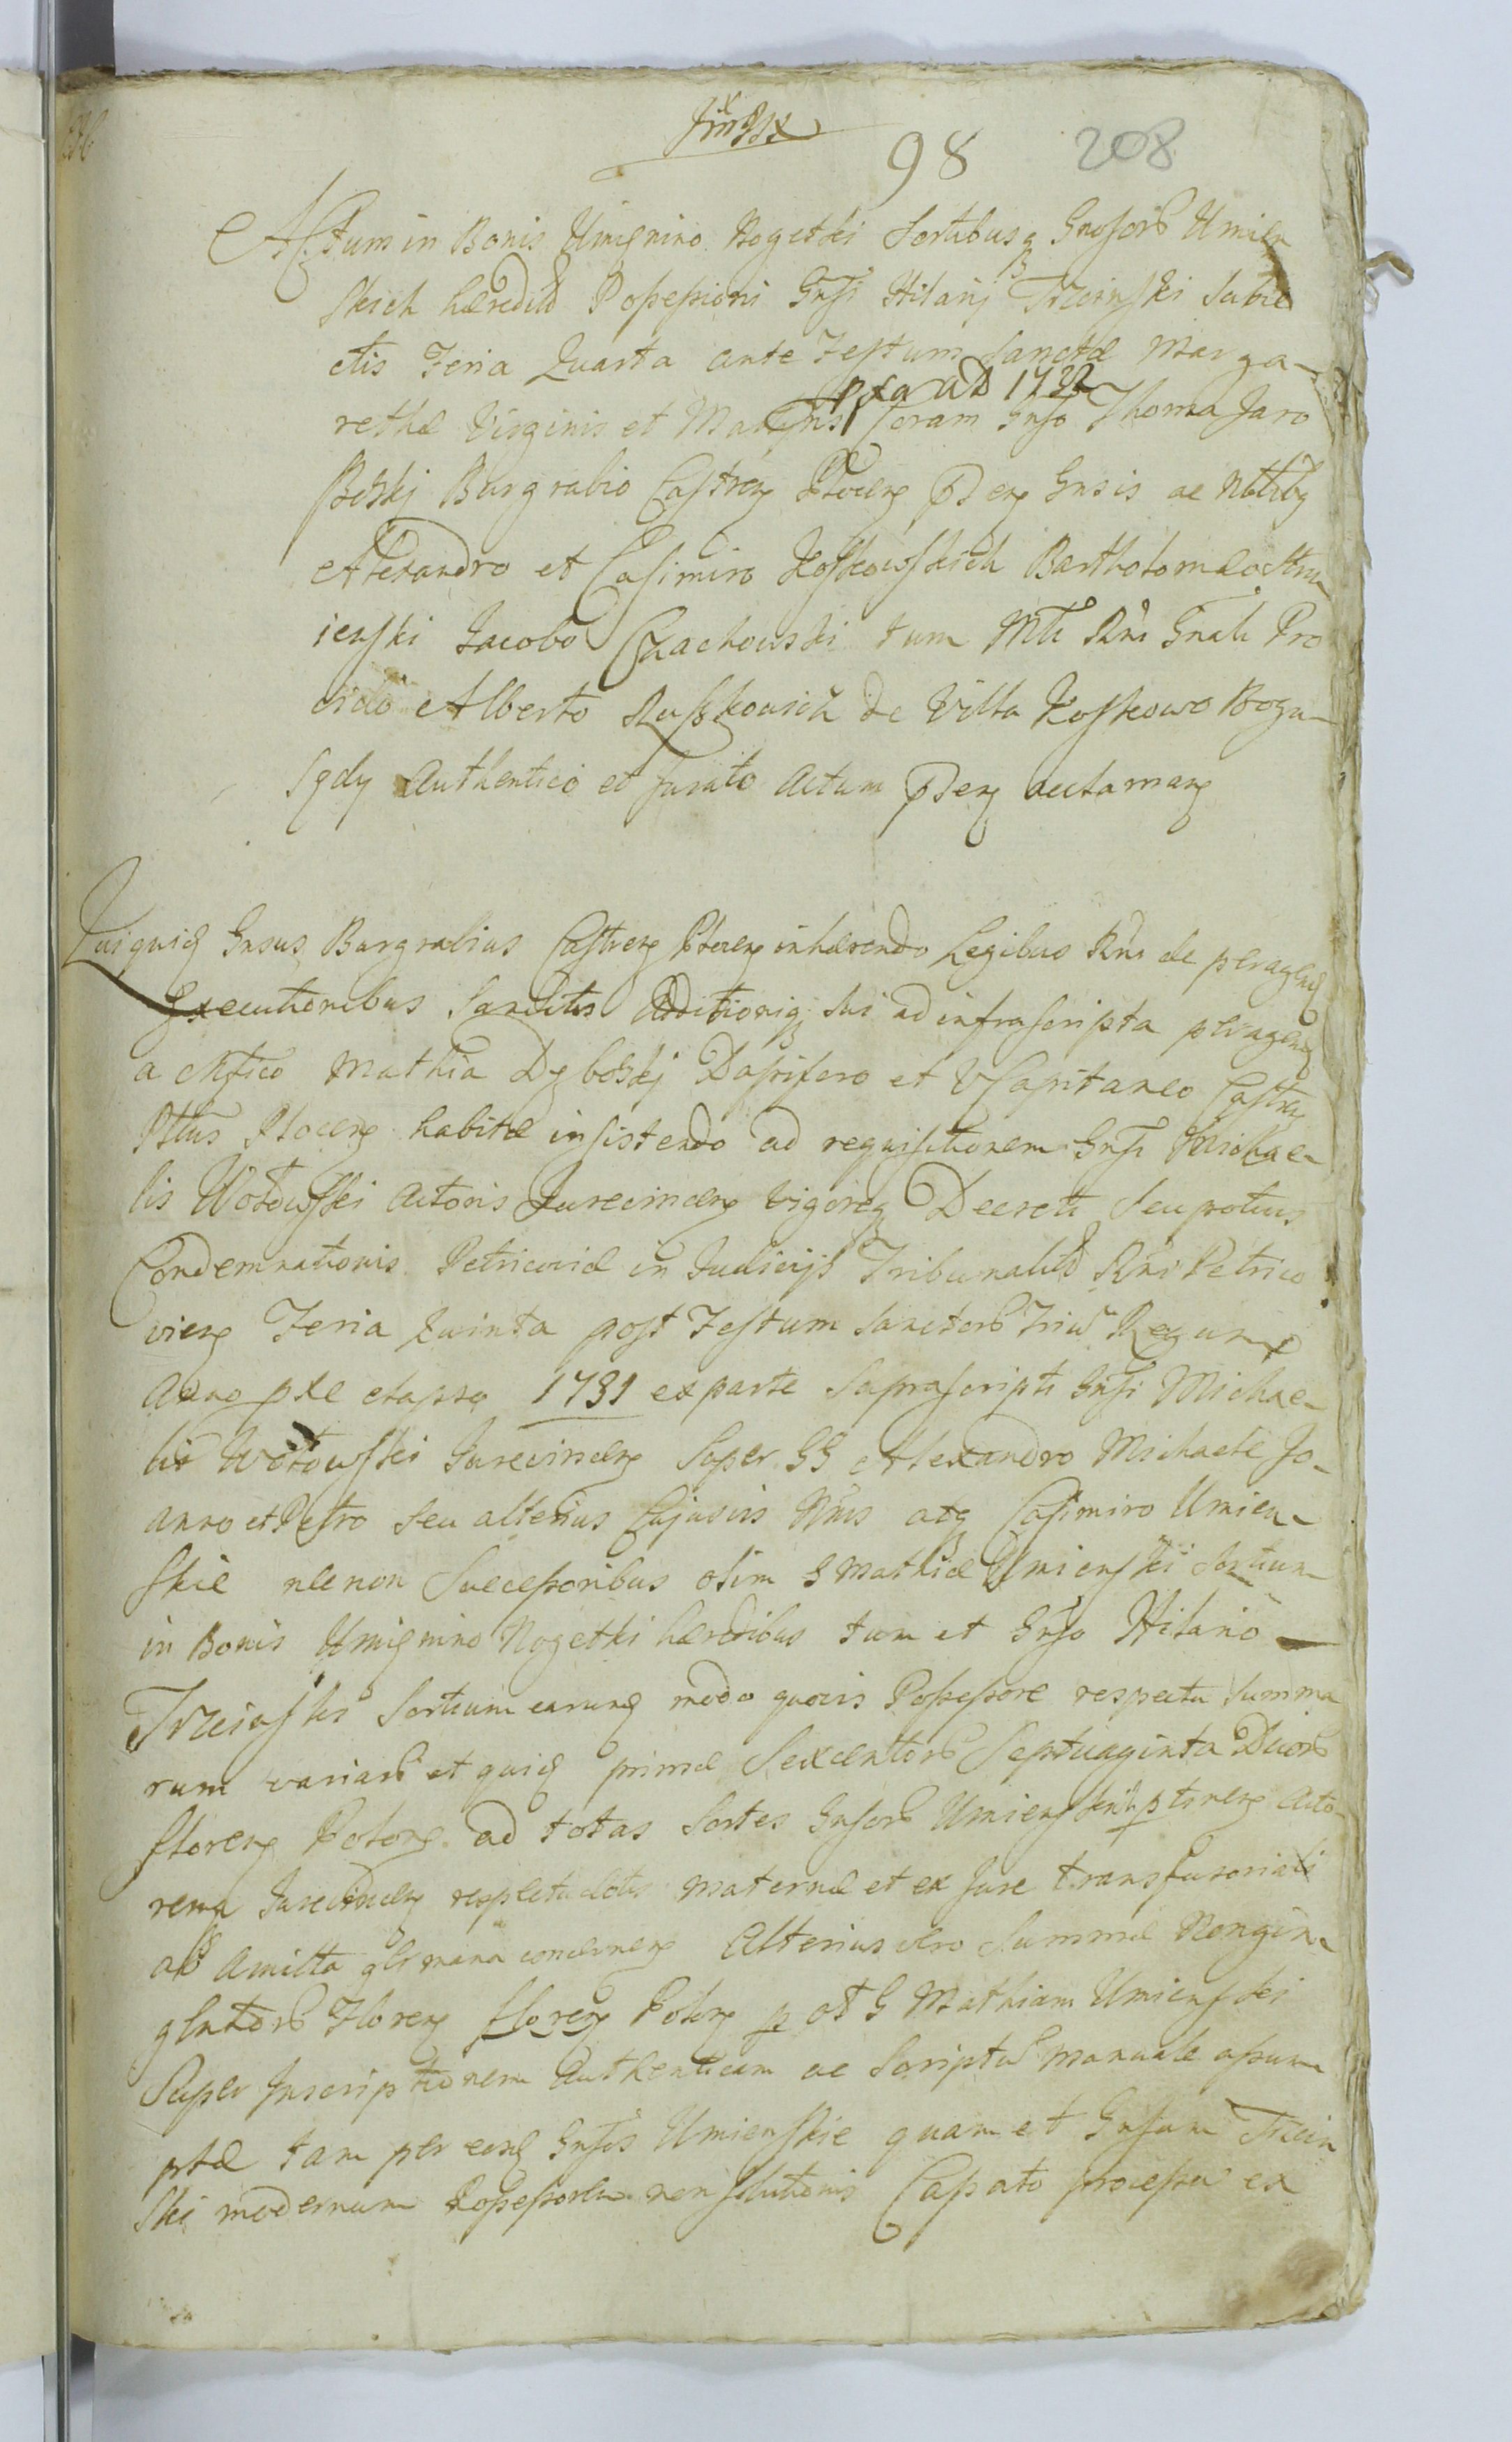 98 208
Actum in Bonis Umienino Rogetki Sortibusq Gnsor Umien
skich haeredit Possessioni Gnsi Hilarij Trzcinski subie
ctis Feria Quarta ante Festum Sanctae Marga-
pxa AD 1732
rethae Virginis et Martyris Coram Gnso Thoma Jaro
Burgrabio Castren Plocen Gnsis ac
Alexandro et Casimiro Koskowskich Bartholomaeo
ienski Jacobo Czachowski tum Rni Gnali Pro
Alberto de Villa Koskowo Bogu-
Authentico et Jurato Actum
Quiquid Gnsus Burgrabius Castren Plocen inhaerendo Legibus Rni de peragend
Executionibus Sancitis sui ad infrascripta peragend
a Mgfico Mathia Dęboski Dapifero et VCapitaneo Castren
Plocen habitae insistendo ad requisitionem Gnsi Michae-
lis Wotowski Actoris Jurevincen Vigoreq Decreti seu potius
Condemnationis Petricoviae in Judicijs Tribunalit Rni Petrico
vien Feria Quinta post Festum Sanctor Triu Regum
Anno pxe elapso 1731 ex parte suprascripti Gnsi Michae-
lis Wotowski Jurevincen Super GG Alexandro Michaele Jo-
anno et Petro seu alterius Cujusvis Nnis atq Casimiro Umien-
skie nec non Successoribus olim G Mathiae Umienski Sortium
in Bonis Umienino Rogetki haeredibus tum et Gnso Hilario
Trzcinski Sortium earund modo quovis Possessore respectu summa
rum variar et quid primae Sexcentor Septuaginta Duor
floren Polon. ad totas Sortes Gnsor Umienskich ptinen Acto-
rem Jurevincen respectu dotis maternae et ex Jure transfusoriali
ab Amitta germana concernen Alterius vero Summae Nongin-
gentor Floren floren Polon p ot G Mathiam Umienski
Super Inscriptionem Authenticam ac Scriptu manuale assum
ptae tam per eosd Gnsos Umienskie quam et Gnsum Trzcin
ski modernum Possessorem non solutionis Captato processu ex